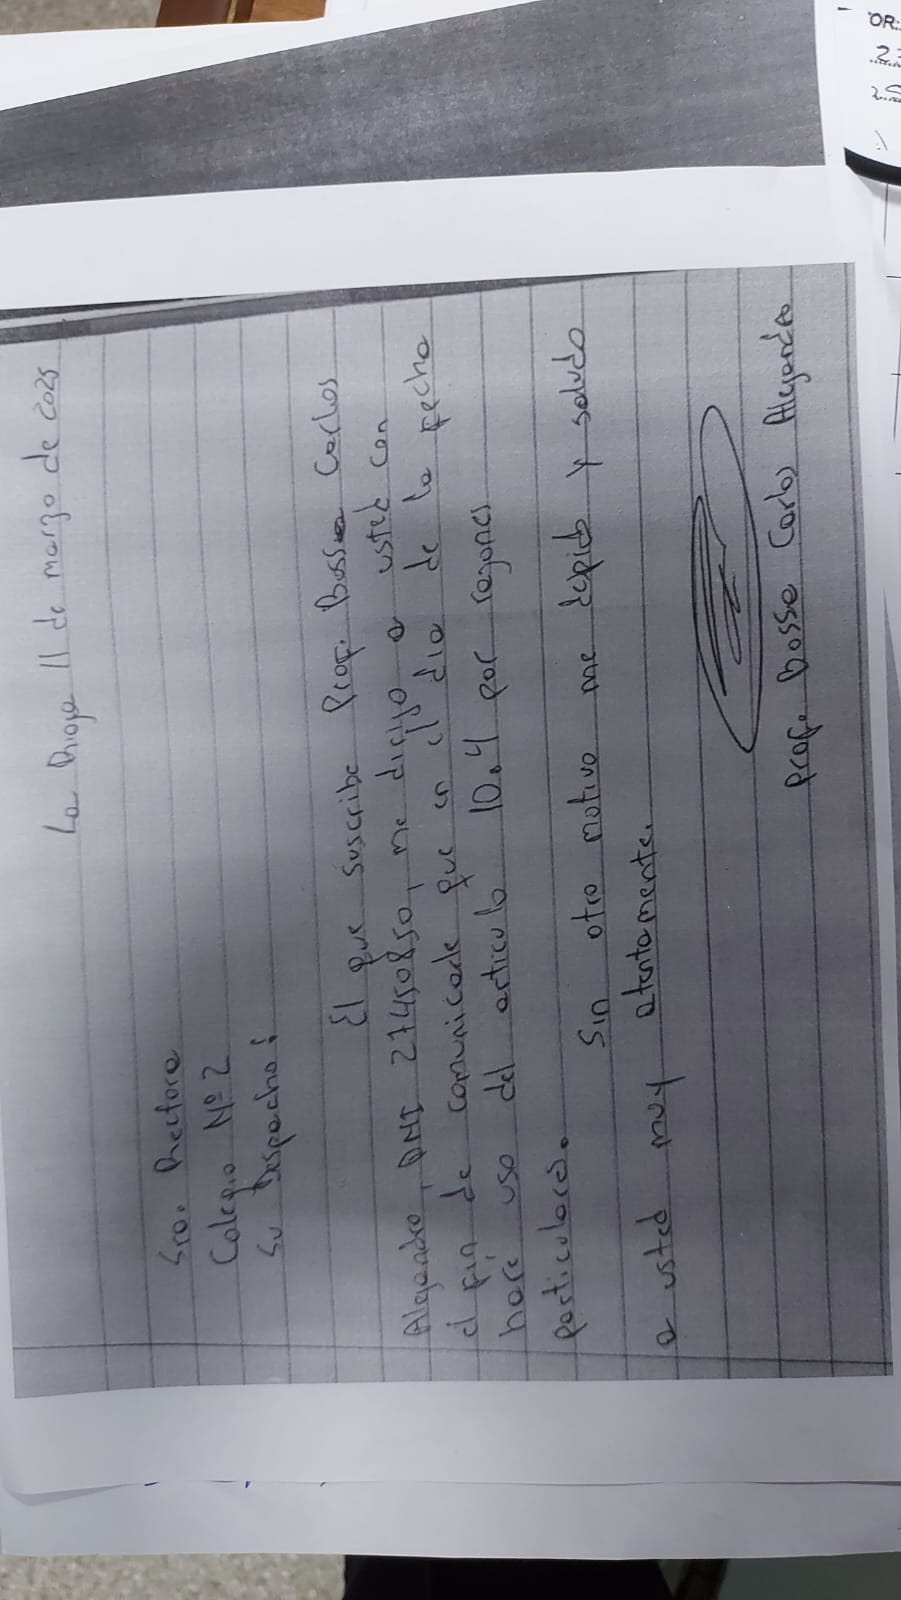 La Rioja 11 de marzo de 2025
Sra. Rectora
Colegio Nº 2
Su Despacho:
El que suscribe Prof. Bosse Carlos
Alejandro, DNI 27450850, me dirijo a usted con
el fin de comunicarle que en el día de la fecha
haré uso del artículo 10.4 por razones
particulares.
Sin otro motivo me depido y saludo
a usted muy atentamente.
Prof. Bosse Carlos Alejandro
OR: